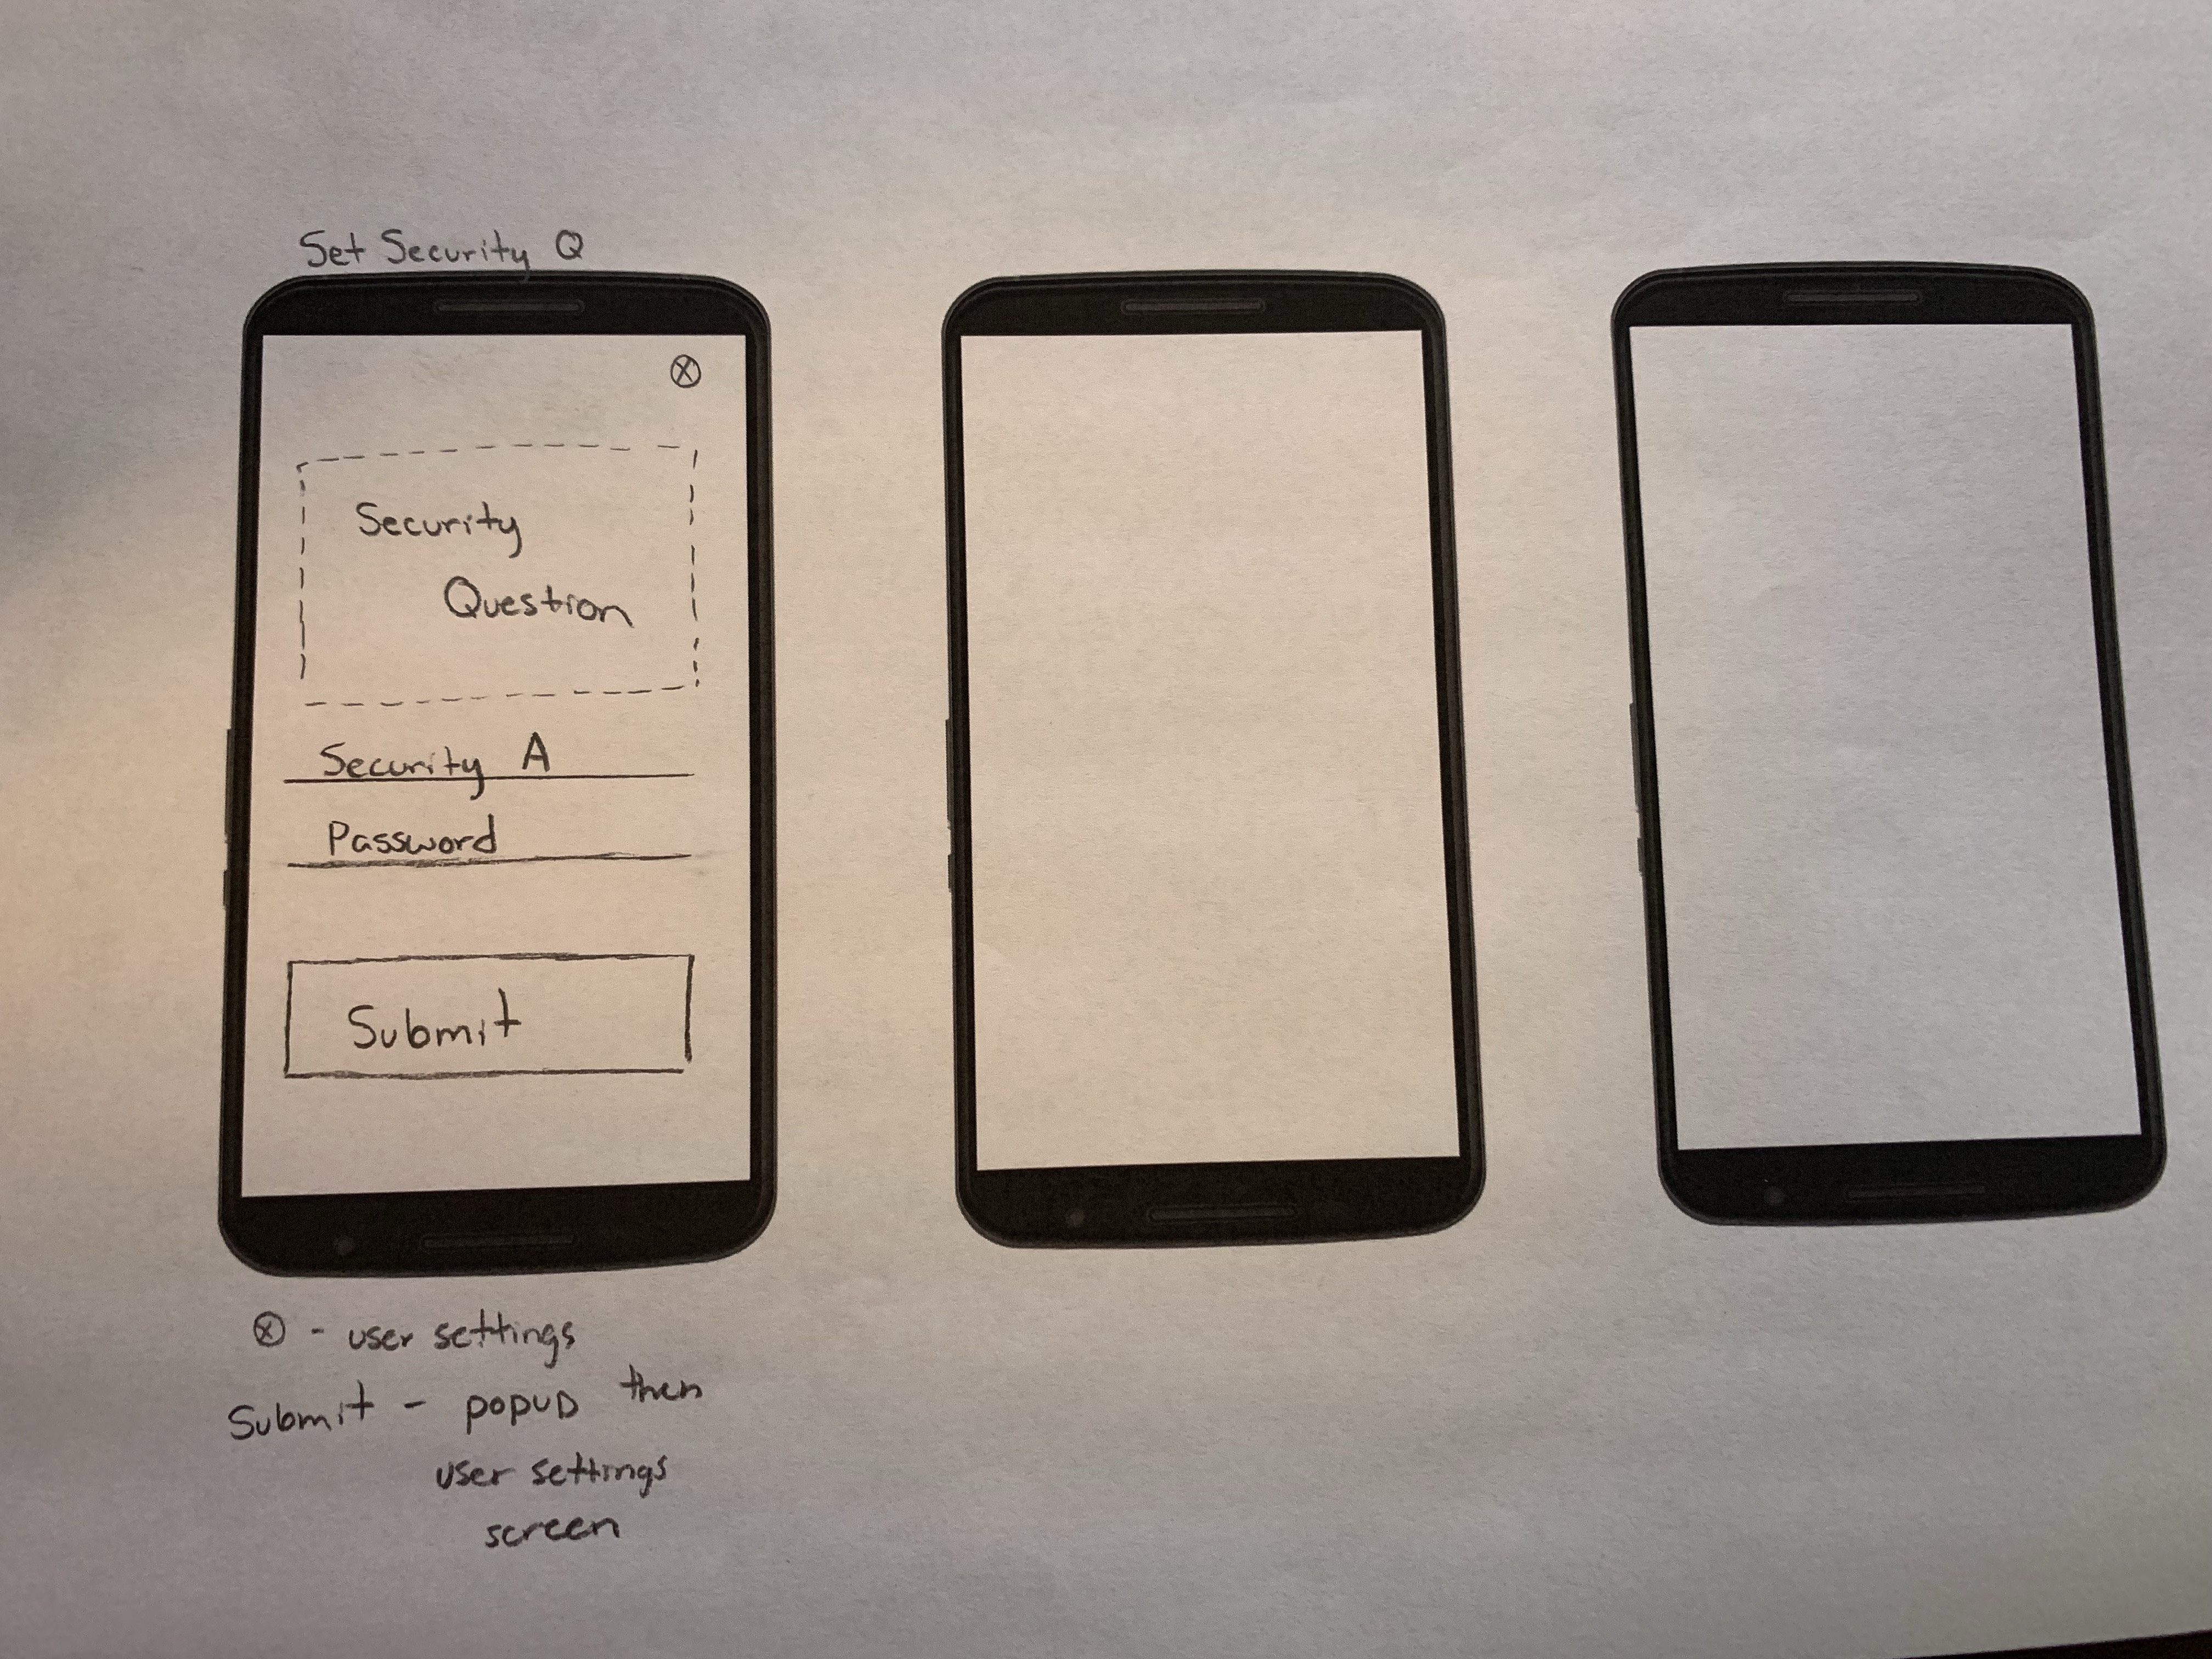 Set Security Q
ⓧ
Security
Question
Security A
Password
Submit
ⓧ - user settings
Submit - popup then
user settings
screen